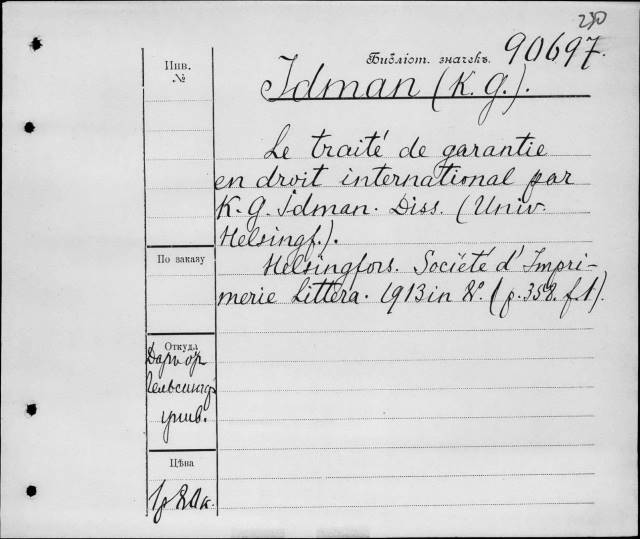 230
Библіот. значекъ. 90697.
Инв.
№
Idman (K. G.).
Le traité de garantie
en droit international par
K. G. Idman. Diss. (Univ.
Helsingf.).
По заказу
Helsingfors. Société d'Impri-
merie Littera. 1913 in 8º. (p. 358. f. 1).
Откуда
Даръ от
Гельсингф.
унив.
Цѣна
1р